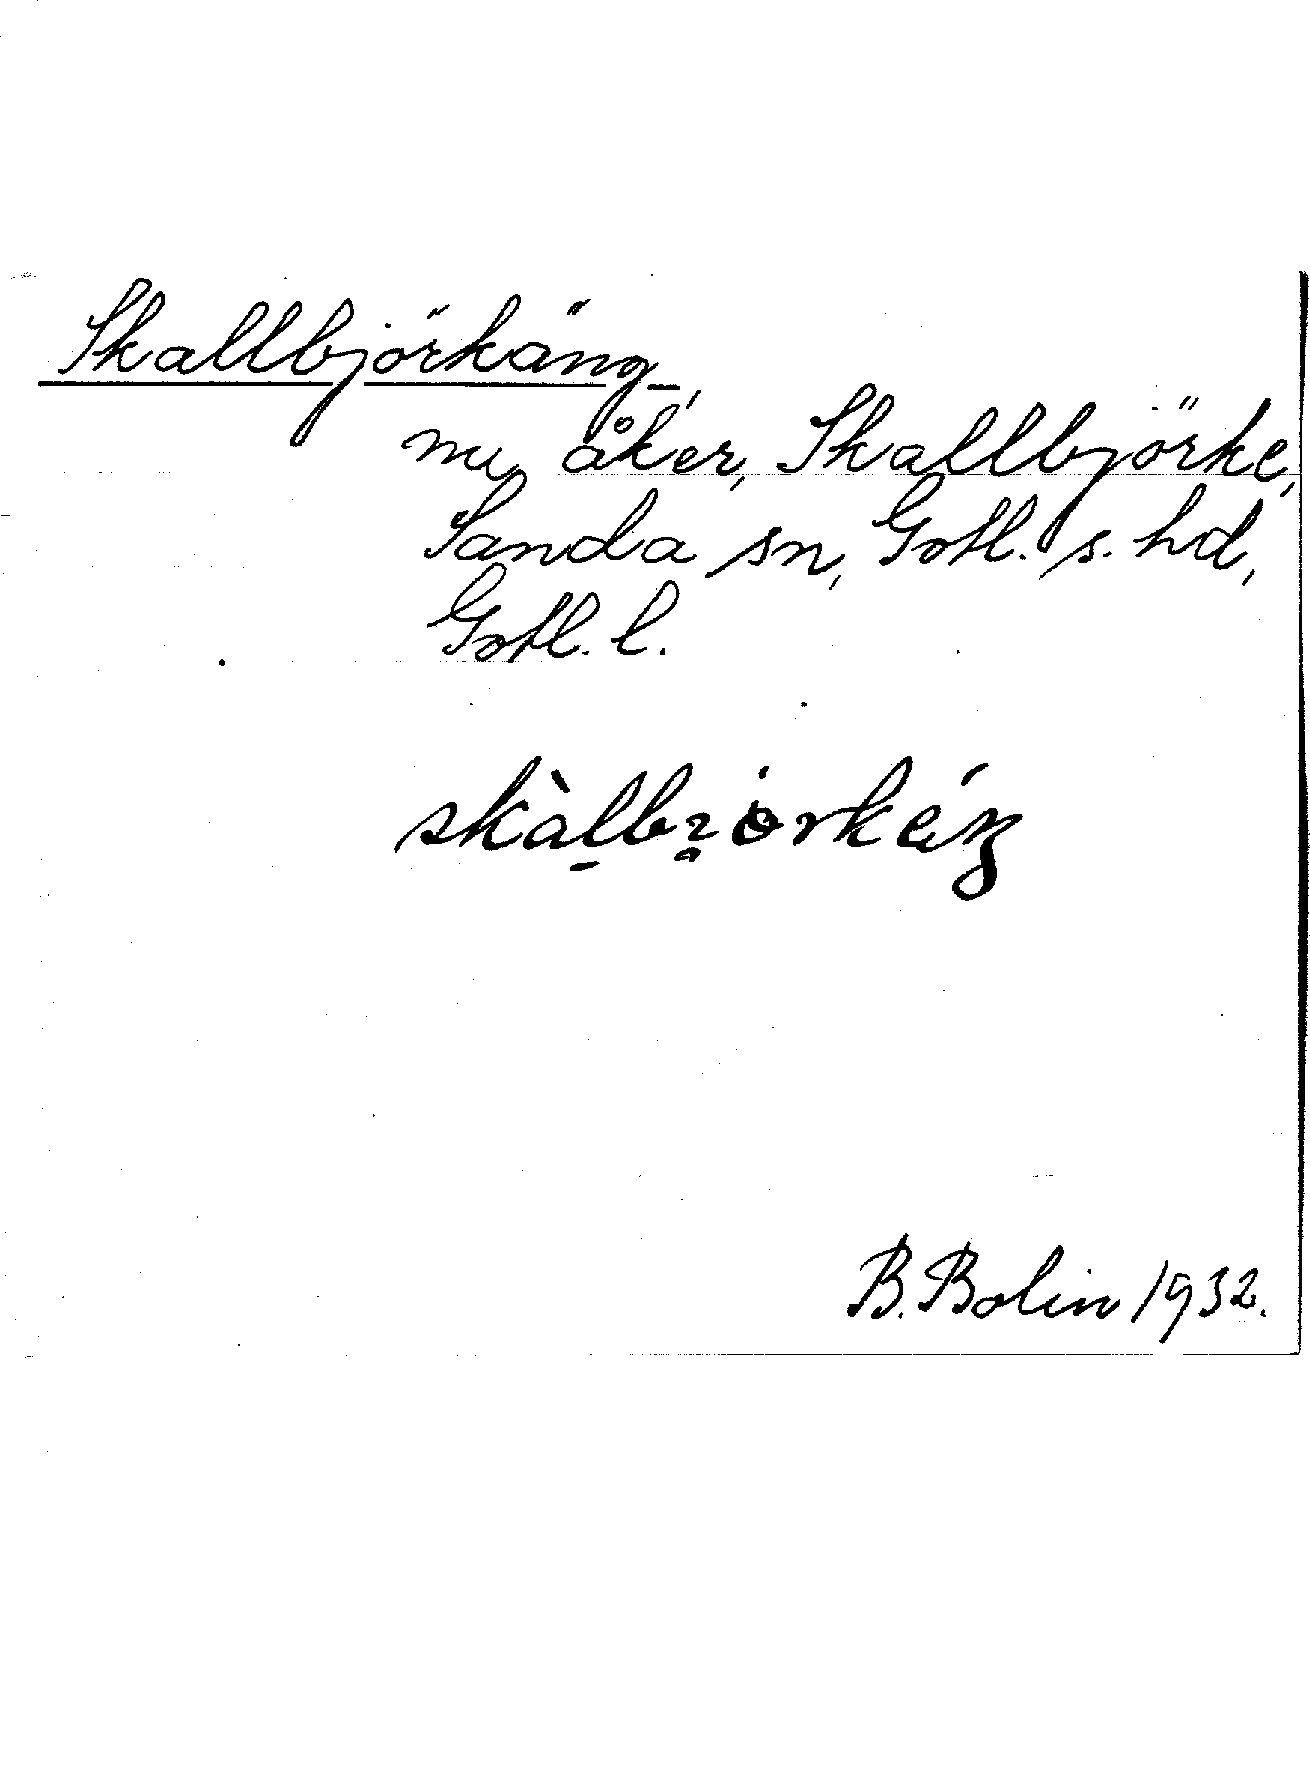 Skallbjörkäng,
nu åker, Skallbjörke,
Sanda sn, Gotl. s. hd,
Gotl. l.
B. Bolin 1932.